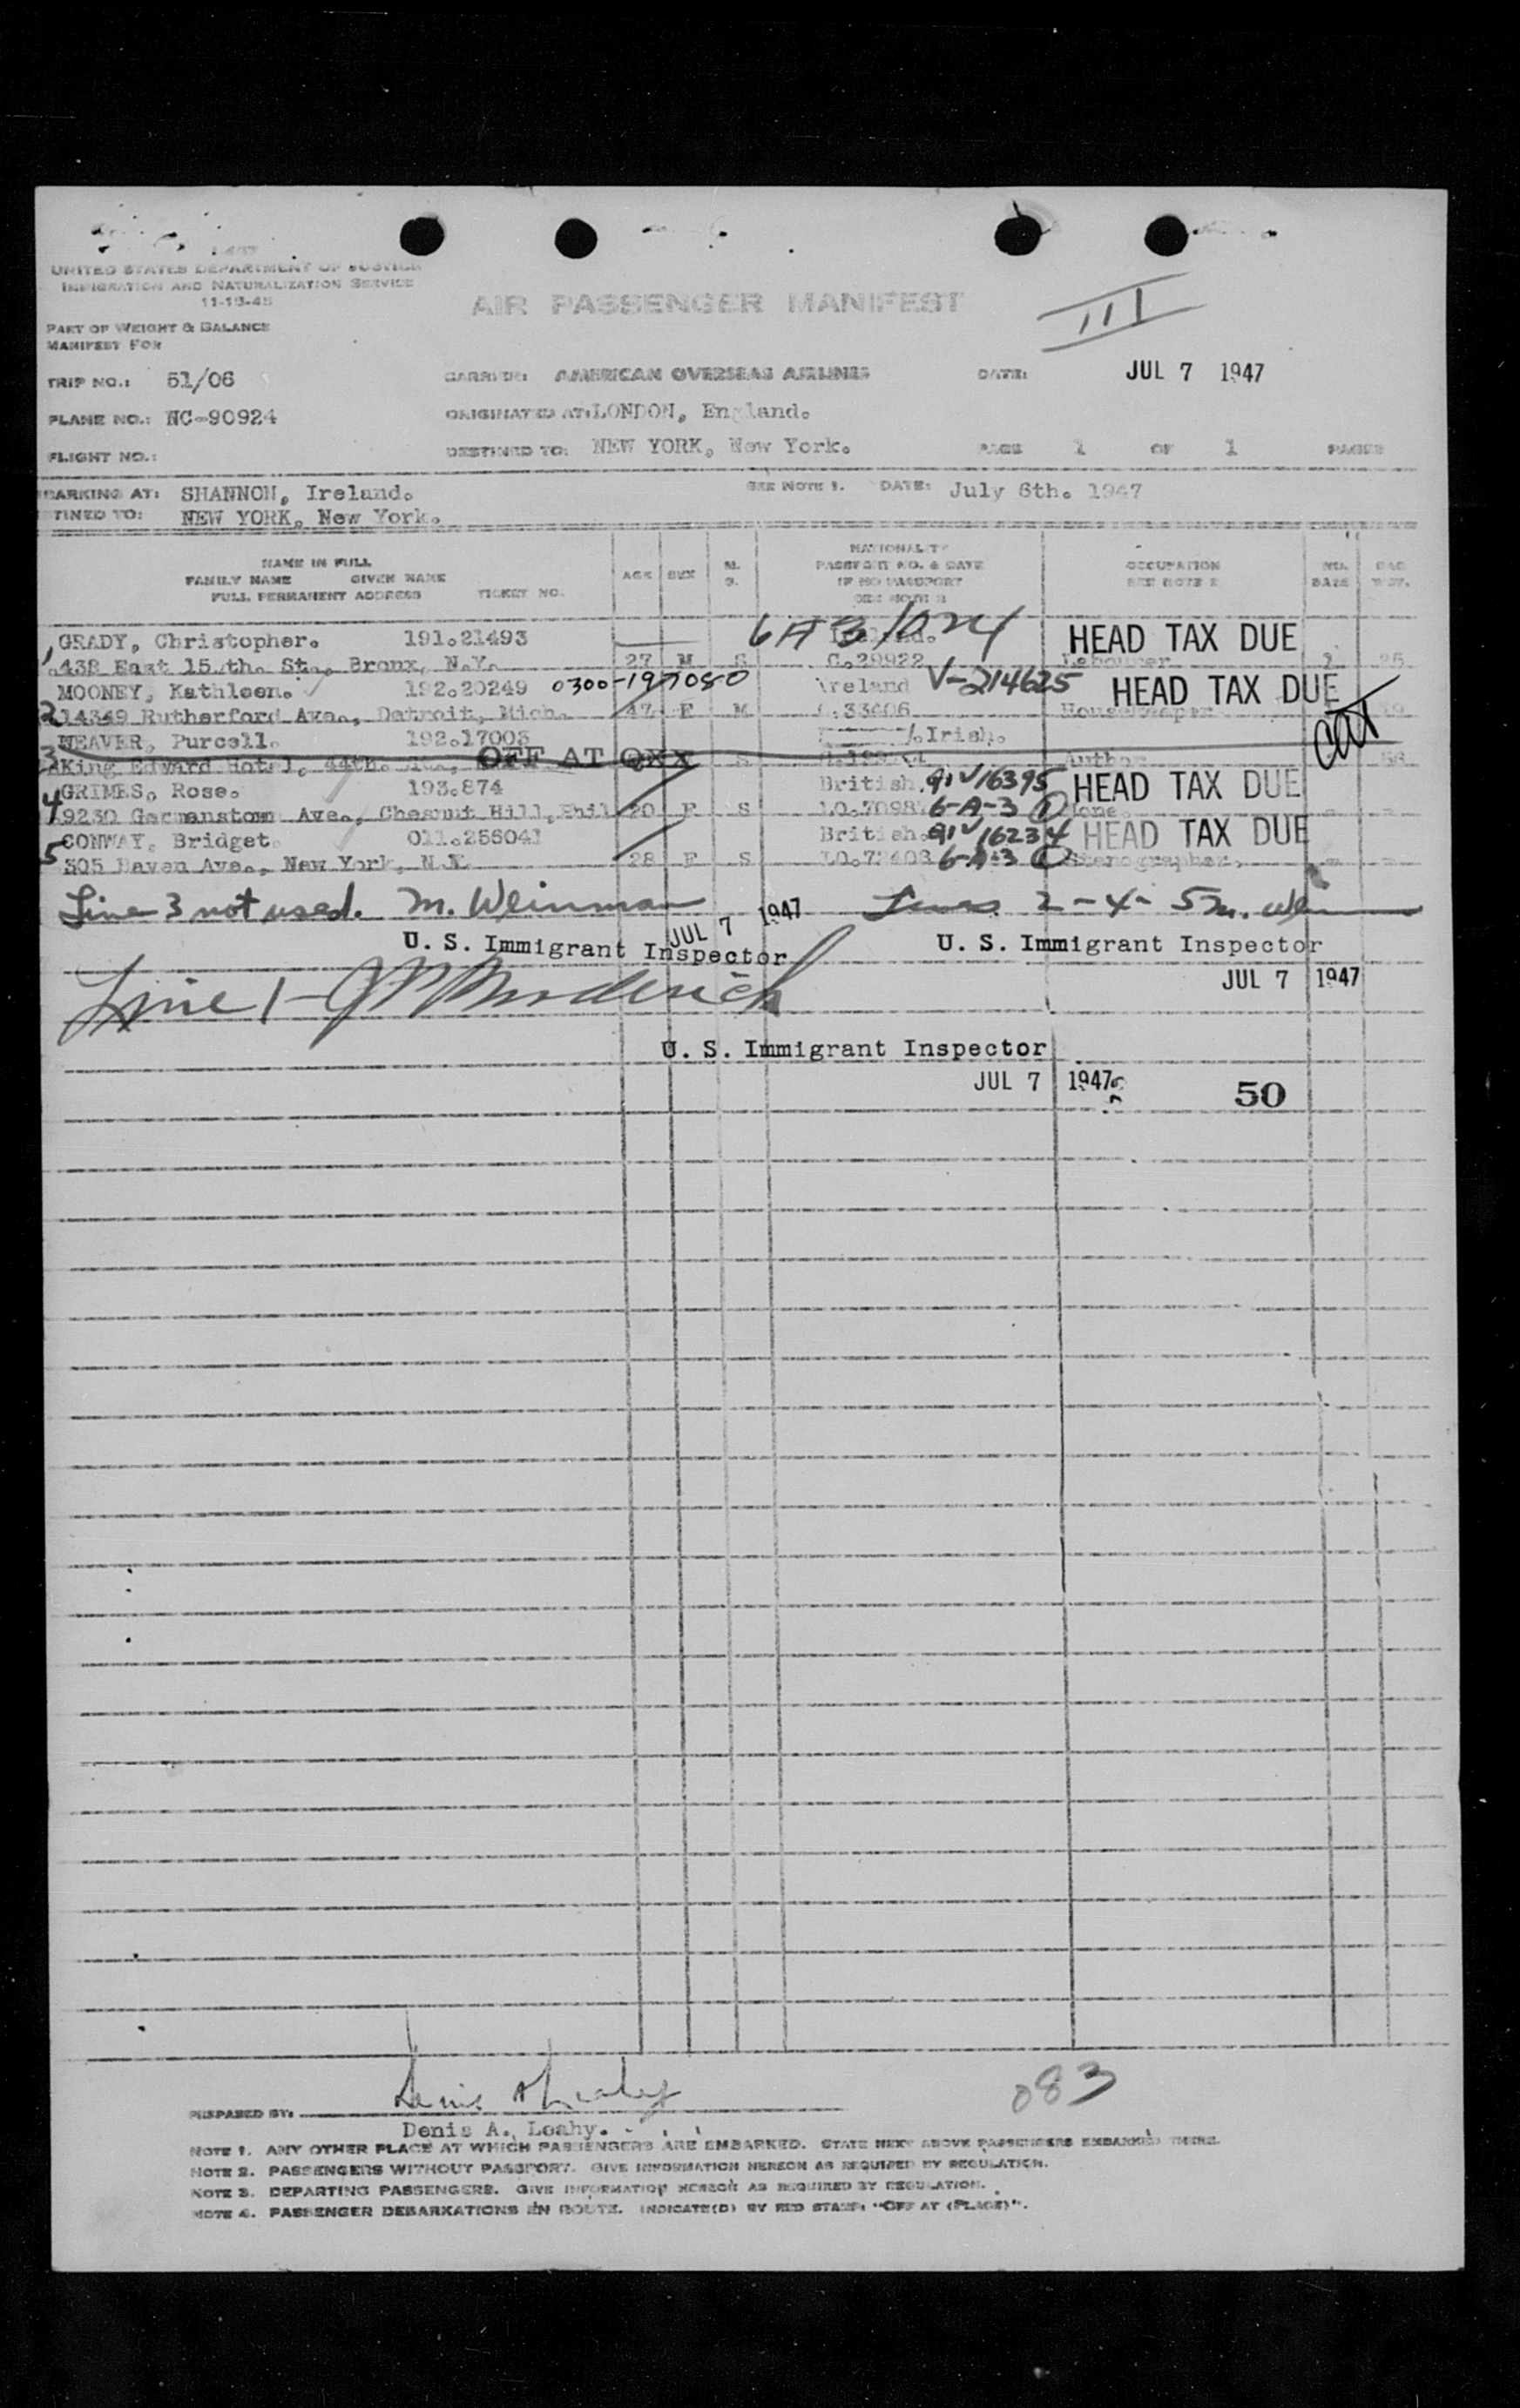 I-457
UNITED STATES DEPARTMENT OF JUSTICE
IMMIGRATION AND NATURALIZATION SERVICE
11-15-45
AIR PASSENGER MANIFEST
III
PART OF WEIGHT & BALANCE
MANIFEST FOR
TRIP NO.: 51/06 CARRIER: AMERICAN OVERSEAS AIRLINES DATE: JUL 7 1947
PLANE NO.: NC-90924 ORIGINATED AT: LONDON, England.
FLIGHT NO.: DESTINED TO: NEW YORK, New York. PAGE 1 OF 1 PAGES
BARKING AT: SHANNON, Ireland. SEE NOTE 1. DATE: July 6th. 1947
TINED TO: NEW YORK, New York.
NAME IN FULL
FAMILY NAME GIVEN NAME
FULL PERMANENT ADDRESS TICKET NO.
AGE SEX M. S.
NATIONALITY
PASSPORT NO. & DATE
IF NO PASSPORT
SEE NOTE 2
OCCUPATION
SEE NOTE 2
NO. BAGS
BAG WGT.
1 GRADY, Christopher. 191.21493 6A3/024 HEAD TAX DUE
438 East 15.th. St., Bronx, N.Y. 27 M S C.29922 Labourer 1 25
MOONEY, Kathleen. 192.20249 0300-197080 Ireland V-214625 HEAD TAX DUE
2 14349 Rutherford Ave., Detroit, Mich. 47 F M 33406 Housekeeper
WEAVER, Purcell. 192.17003 Irish.
3 King Edward Hotel, 44th. OFF AT QXX S Author
GRIMES, Rose. 193.874 British. 16395 HEAD TAX DUE
4 9230 Germanstown Ave., Chesnut Hill, Phil 20 F S 6-A-3 1 None
CONWAY, Bridget 011.256041 British. 16234 HEAD TAX DUE
5 305 Haven Ave., New York, N.Y. 28 F S 6-A-3 1 Stenographer.
Line 3 not used. M. Weinman JUL 7 1947 Lines 2-4-5 M. Wein
U. S. Immigrant Inspector U. S. Immigrant Inspector
JUL 7 1947
Line 1 -
U. S. Immigrant Inspector
JUL 7 1947
50
083
PREPARED BY:
Denis A. Leahy.
NOTE 1. ANY OTHER PLACE AT WHICH PASSENGERS ARE EMBARKED. STATE NEXT ABOVE PASSENGERS EMBARKED THERE.
NOTE 2. PASSENGERS WITHOUT PASSPORT. GIVE INFORMATION HEREON AS REQUIRED BY REGULATION.
NOTE 3. DEPARTING PASSENGERS. GIVE INFORMATION HEREON AS REQUIRED BY REGULATION.
NOTE 4. PASSENGER DEBARKATIONS EN ROUTE. INDICATE(D) BY RED STAMP: "OFF AT (PLACE)".